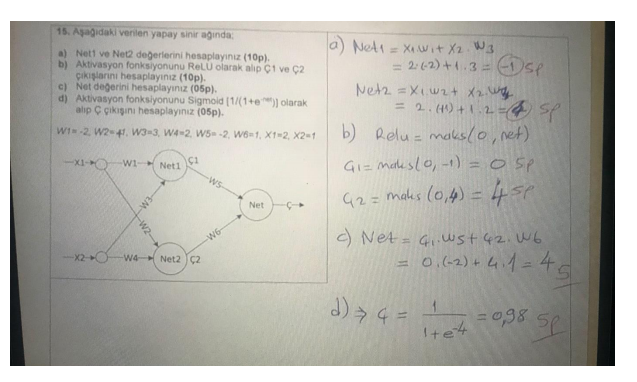 15. Aşağıdaki verilen yapay sinir ağında;
a) Net1 ve Net2 değerlerini hesaplayınız (10p).
b) Aktivasyon fonksiyonunu ReLU olarak alıp Ç1 ve Ç2
çıkışlarını hesaplayınız (10p).
c) Net değerini hesaplayınız (05p).
d) Aktivasyon fonksiyonunu Sigmoid [1/(1+e⁻ⁿᵉᵗ)] olarak
alıp Ç çıkışını hesaplayınız (05p).
W1= -2, W2=+1, W3=3, W4=2, W5= -2, W6=1, X1=2, X2=1
X1 W1 Net1 Ç1
W3 W5
Net Ç
W2 W6
X2 W4 Net2 Ç2
a) Net1 = X1.W1 + X2.W3
= 2.(-2)+1.3 = -1 5p
Net2 = X1.W2 + X2.W4
= 2.(+1)+1.2 = 4 5p
b) Relu = maks(0, net)
Ç1 = maks(0,-1) = 0 5p
Ç2 = maks(0,4) = 4 5p
c) Net = Ç1.W5 + Ç2.W6
= 0.(-2) + 4.1 = 4 5
d) ⇒ Ç = 1/(1+e⁻⁴) = 0,98 5p